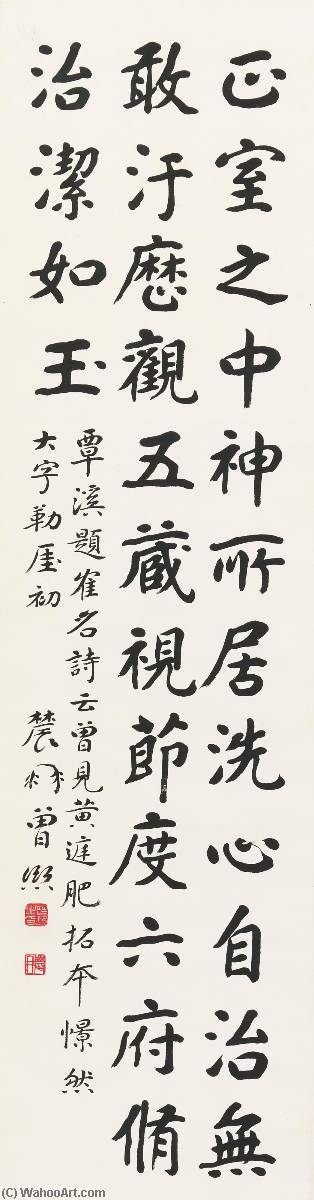 正室之中神所居洗心自治無
敢汙歷觀五藏視節度六府脩
治潔如玉
覃溪題寉名詩云曾見黃庭肥拓本憬然
大字勒厓初
農髯曾熙
(c) WahooArt.com